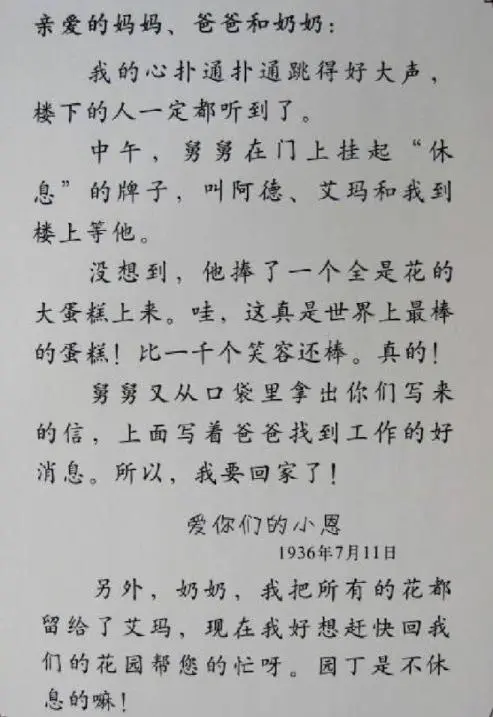 亲爱的妈妈、爸爸和奶奶：
我的心扑通扑通跳得好大声，
楼下的人一定都听到了。
中午，舅舅在门上挂起“休
息”的牌子，叫阿德、艾玛和我到
楼上等他。
没想到，他捧了一个全是花的
大蛋糕上来。哇，这真是世界上最棒
的蛋糕！比一千个笑容还棒。真的！
舅舅又从口袋里拿出你们写来
的信，上面写着爸爸找到工作的好
消息。所以，我要回家了！
爱你们的小恩
1936年7月11日
另外，奶奶，我把所有的花都
留给了艾玛，现在我好想赶快回我
们的花园帮您的忙呀。园丁是不休
息的嘛！